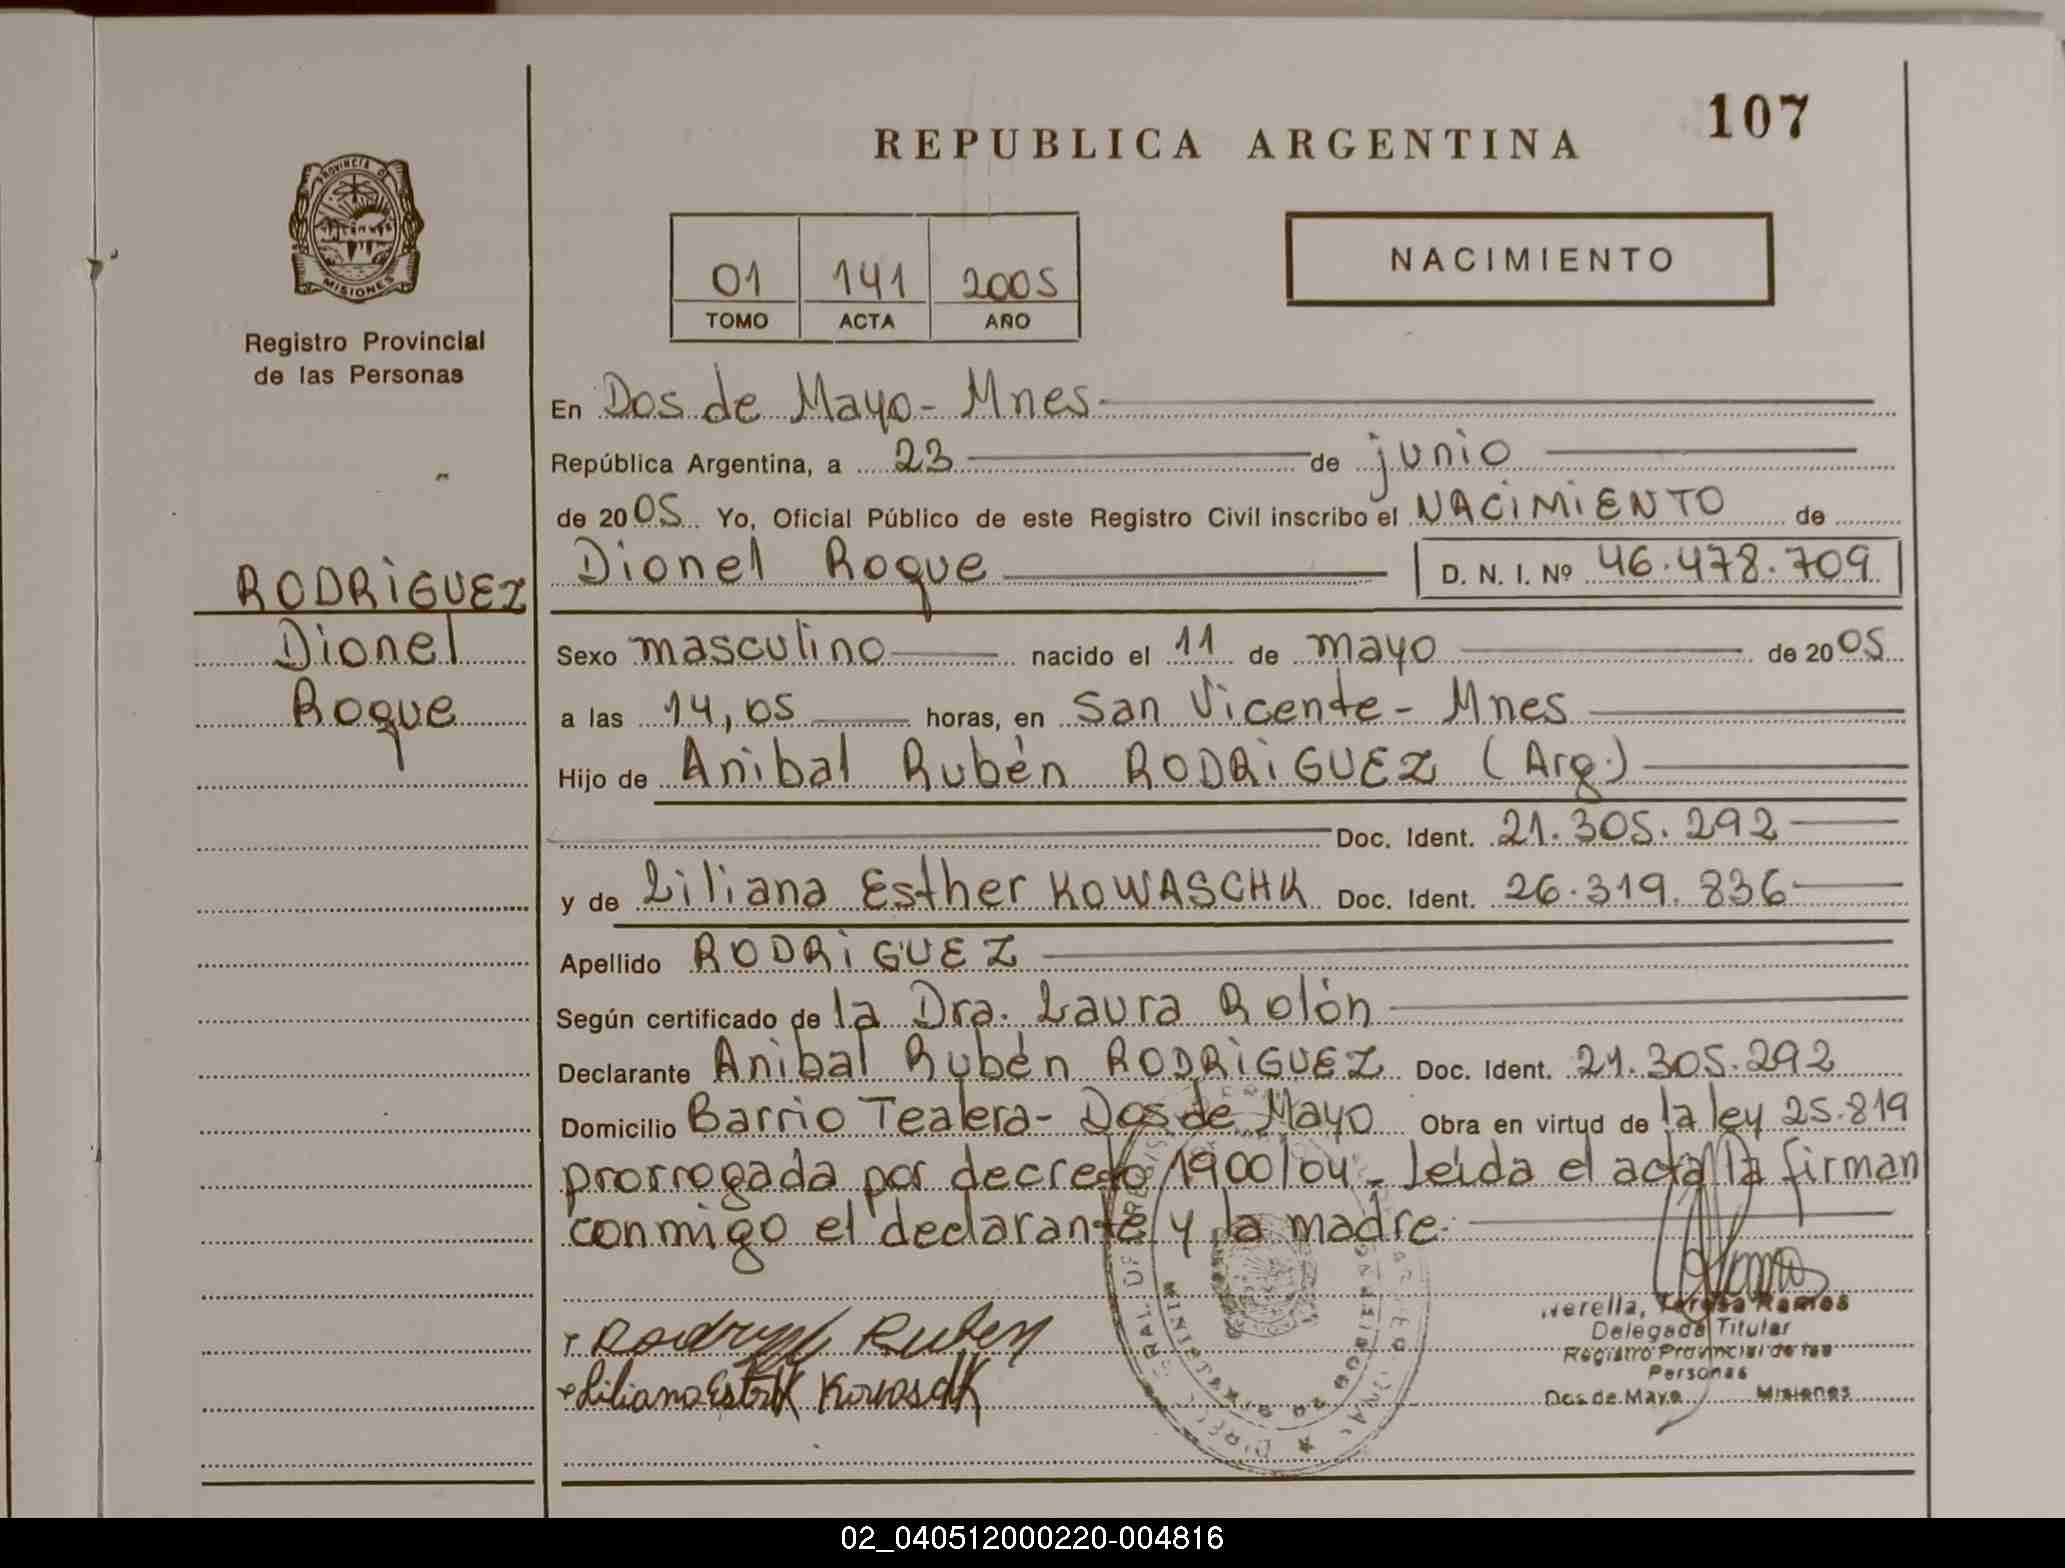 107
REPUBLICA ARGENTINA
PROVINCIA DE
MISIONES
Registro Provincial
de las Personas
NACIMIENTO
01 141 2005
TOMO ACTA AÑO
En Dos de Mayo - Mnes
República Argentina, a 23 de junio
de 2005 Yo, Oficial Público de este Registro Civil inscribo el NACIMIENTO de
RODRIGUEZ
Dionel
Roque
Dionel Roque D. N. I. Nº 46.478.709
Sexo masculino nacido el 11 de mayo de 2005
a las 14,05 horas, en San Vicente - Mnes
Hijo de Anibal Rubén RODRIGUEZ (Arg.)
Doc. Ident. 21.305.292
y de Liliana Esther KOWASCHK Doc. Ident. 26.319.836
Apellido RODRIGUEZ
Según certificado de la Dra. Laura Rolón
Declarante Anibal Rubén RODRIGUEZ Doc. Ident. 21.305.292
Domicilio Barrio Tealera - Dos de Mayo Obra en virtud de la ley 25.819
prorrogada por decreto 1900/04 - Leída el acta la firman
conmigo el declarante y la madre.
Ruben
Liliana Kowaschk
Teresa Ramos
Delegada Titular
Registro Provincial de las
Personas
Dos de Mayo Misiones
02_040512000220-004816